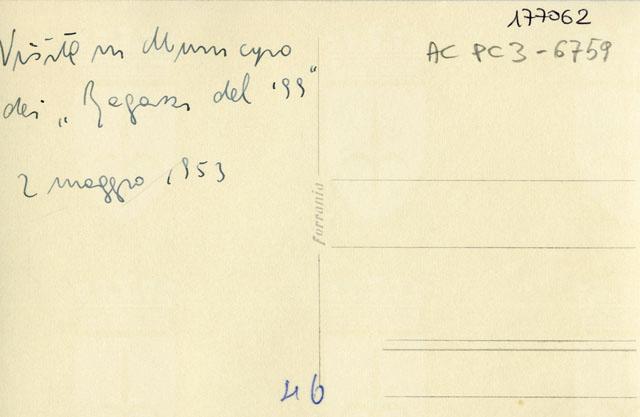 Visita in Municipio
dei „Ragazzi del '99"
2 maggio 1953
177062
AC PC3-6759
ferrania
46